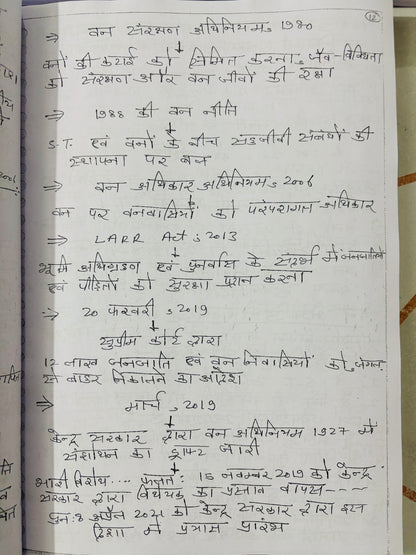 12
⇒ वन संरक्षण अधिनियम, 1980
वनों की कटाई को सिमित करना, जैव-विविधता
का संरक्षण और वन जीवों की रक्षा
⇒ 1988 की वन नीति
S.T. एवं वनों के बीच सहजीवी संबंधों की
स्थापना पर बल
⇒ वन अधिकार अधिनियम, 2006
वन पर वनवासियों को परंपरागत अधिकार
⇒ LARR Act : 2013
भूमि अधिग्रहण एवं पुनर्वास के संदर्भ में जनजातियों
एवं पीड़ितों को सुरक्षा प्रदान करना
⇒ 20 फरवरी, 2019
सुप्रीम कोर्ट द्वारा
12 लाख जनजाति एवं वन निवासियों को जंगल
से बाहर निकालने का आदेश
⇒ मार्च, 2019
केन्द्र सरकार द्वारा वन अधिनियम 1927 में
संशोधन का ड्राफ्ट जारी
भारी विरोध.... फलतः : 15 नवम्बर 2019 को केन्द्र
सरकार द्वारा विधेयक का प्रस्ताव वापस ----
पुन: 8 अप्रैल 2021 को केन्द्र सरकार द्वारा इस
दिशा में प्रयास प्रारंभ